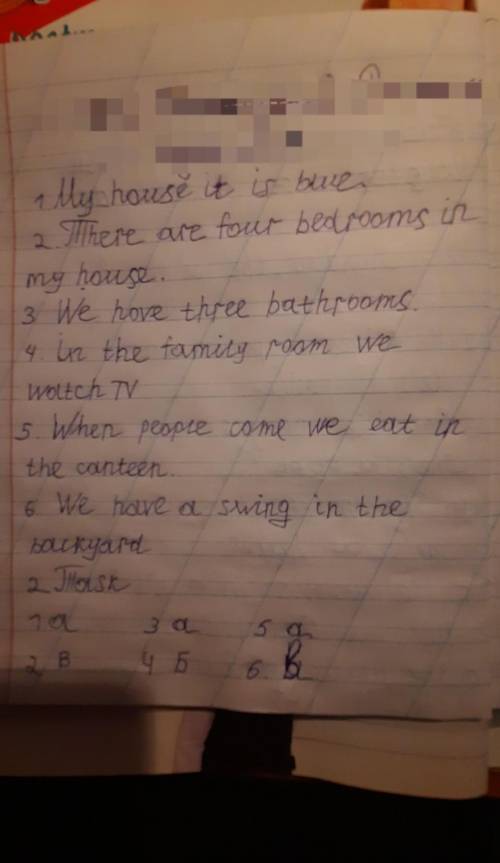 1 My house it is blue.
2. There are four bedrooms in
my house.
3 We hove three bathrooms.
4. in the family room we
watch TV
5. When people come we eat in
the canteen.
6 We have a swing in the
backyard
2 Task
1 a 3 a 5 a
2 в 4 Б 6. В